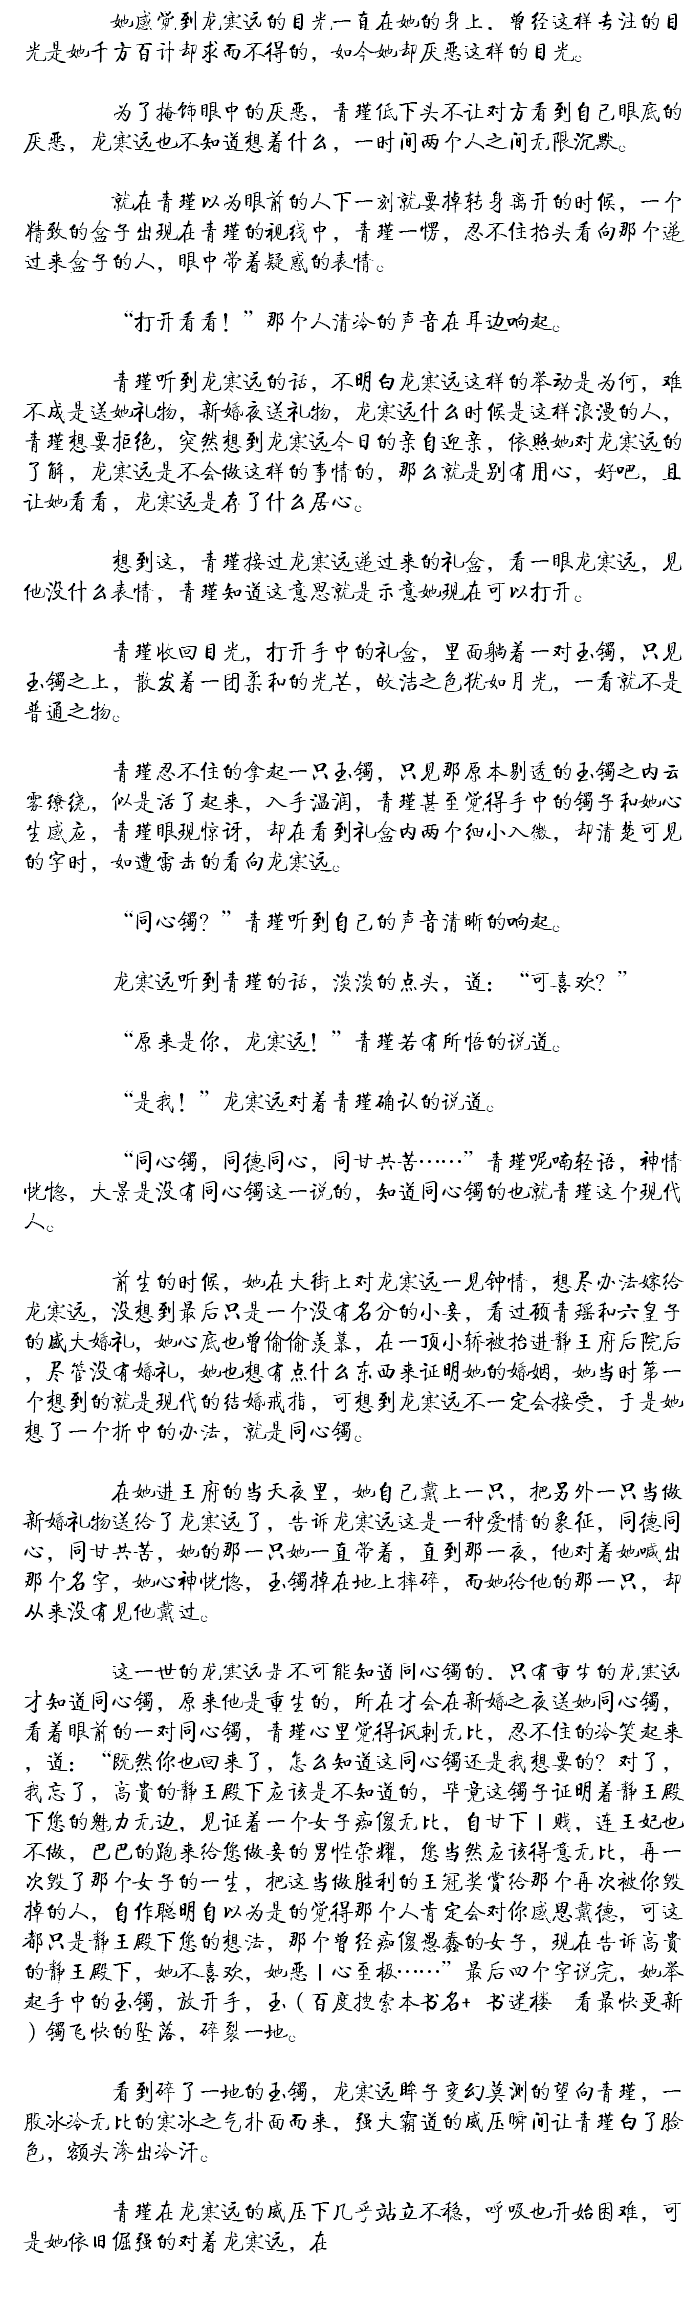 她感觉到龙寒远的目光一直在她的身上，曾经这样专注的目
光是她千方百计却求而不得的，如今她却厌恶这样的目光。
为了掩饰眼中的厌恶，青瑾低下头不让对方看到自己眼底的
厌恶，龙寒远也不知道想着什么，一时间两个人之间无限沉默。
就在青瑾以为眼前的人下一刻就要掉转身离开的时候，一个
精致的盒子出现在青瑾的视线中，青瑾一愣，忍不住抬头看向那个递
过来盒子的人，眼中带着疑惑的表情。
“打开看看！”那个人清冷的声音在耳边响起。
青瑾听到龙寒远的话，不明白龙寒远这样的举动是为何，难
不成是送她礼物，新婚夜送礼物，龙寒远什么时候是这样浪漫的人，
青瑾想要拒绝，突然想到龙寒远今日的亲自迎亲，依照她对龙寒远的
了解，龙寒远是不会做这样的事情的，那么就是别有用心，好吧，且
让她看看，龙寒远是存了什么居心。
想到这，青瑾接过龙寒远递过来的礼盒，看一眼龙寒远，见
他没什么表情，青瑾知道这意思就是示意她现在可以打开。
青瑾收回目光，打开手中的礼盒，里面躺着一对玉镯，只见
玉镯之上，散发着一团柔和的光芒，皎洁之色犹如月光，一看就不是
普通之物。
青瑾忍不住的拿起一只玉镯，只见那原本剔透的玉镯之内云
雾缭绕，似是活了起来，入手温润，青瑾甚至觉得手中的镯子和她心
生感应，青瑾眼现惊讶，却在看到礼盒内两个细小入微，却清楚可见
的字时，如遭雷击的看向龙寒远。
“同心镯？”青瑾听到自己的声音清晰的响起。
龙寒远听到青瑾的话，淡淡的点头，道：“可喜欢？”
“原来是你，龙寒远！”青瑾若有所悟的说道。
“是我！”龙寒远对着青瑾确认的说道。
“同心镯，同德同心，同甘共苦……”青瑾呢喃轻语，神情
恍惚，大景是没有同心镯这一说的，知道同心镯的也就青瑾这个现代
人。
前生的时候，她在大街上对龙寒远一见钟情，想尽办法嫁给
龙寒远，没想到最后只是一个没有名分的小妾，看过顾青瑶和六皇子
的盛大婚礼，她心底也曾偷偷羡慕，在一顶小轿被抬进静王府后院后
，尽管没有婚礼，她也想有点什么东西来证明她的婚姻，她当时第一
个想到的就是现代的结婚戒指，可想到龙寒远不一定会接受，于是她
想了一个折中的办法，就是同心镯。
在她进王府的当天夜里，她自己戴上一只，把另外一只当做
新婚礼物送给了龙寒远了，告诉龙寒远这是一种爱情的象征，同德同
心，同甘共苦，她的那一只她一直带着，直到那一夜，他对着她喊出
那个名字，她心神恍惚，玉镯掉在地上摔碎，而她给他的那一只，却
从来没有见他戴过。
这一世的龙寒远是不可能知道同心镯的，只有重生的龙寒远
才知道同心镯，原来他是重生的，所在才会在新婚之夜送她同心镯，
看着眼前的一对同心镯，青瑾心里觉得讽刺无比，忍不住的冷笑起来
，道：“既然你也回来了，怎么知道这同心镯还是我想要的？对了，
我忘了，高贵的静王殿下应该是不知道的，毕竟这镯子证明着静王殿
下您的魅力无边，见证着一个女子痴傻无比，自甘下丨贱，连王妃也
不做，巴巴的跑来给您做妾的男性荣耀，您当然应该得意无比，再一
次毁了那个女子的一生，把这当做胜利的王冠奖赏给那个再次被你毁
掉的人，自作聪明自以为是的觉得那个人肯定会对你感恩戴德，可这
都只是静王殿下您的想法，那个曾经痴傻愚蠢的女子，现在告诉高贵
的静王殿下，她不喜欢，她恶丨心至极……”最后四个字说完，她举
起手中的玉镯，放开手，玉（百度搜索本书名+ 书迷楼 看最快更新
）镯飞快的坠落，碎裂一地。
看到碎了一地的玉镯，龙寒远眸子变幻莫测的望向青瑾，一
股冰冷无比的寒冰之气扑面而来，强大霸道的威压瞬间让青瑾白了脸
色，额头渗出冷汗。
青瑾在龙寒远的威压下几乎站立不稳，呼吸也开始困难，可
是她依旧倔强的对着龙寒远，在